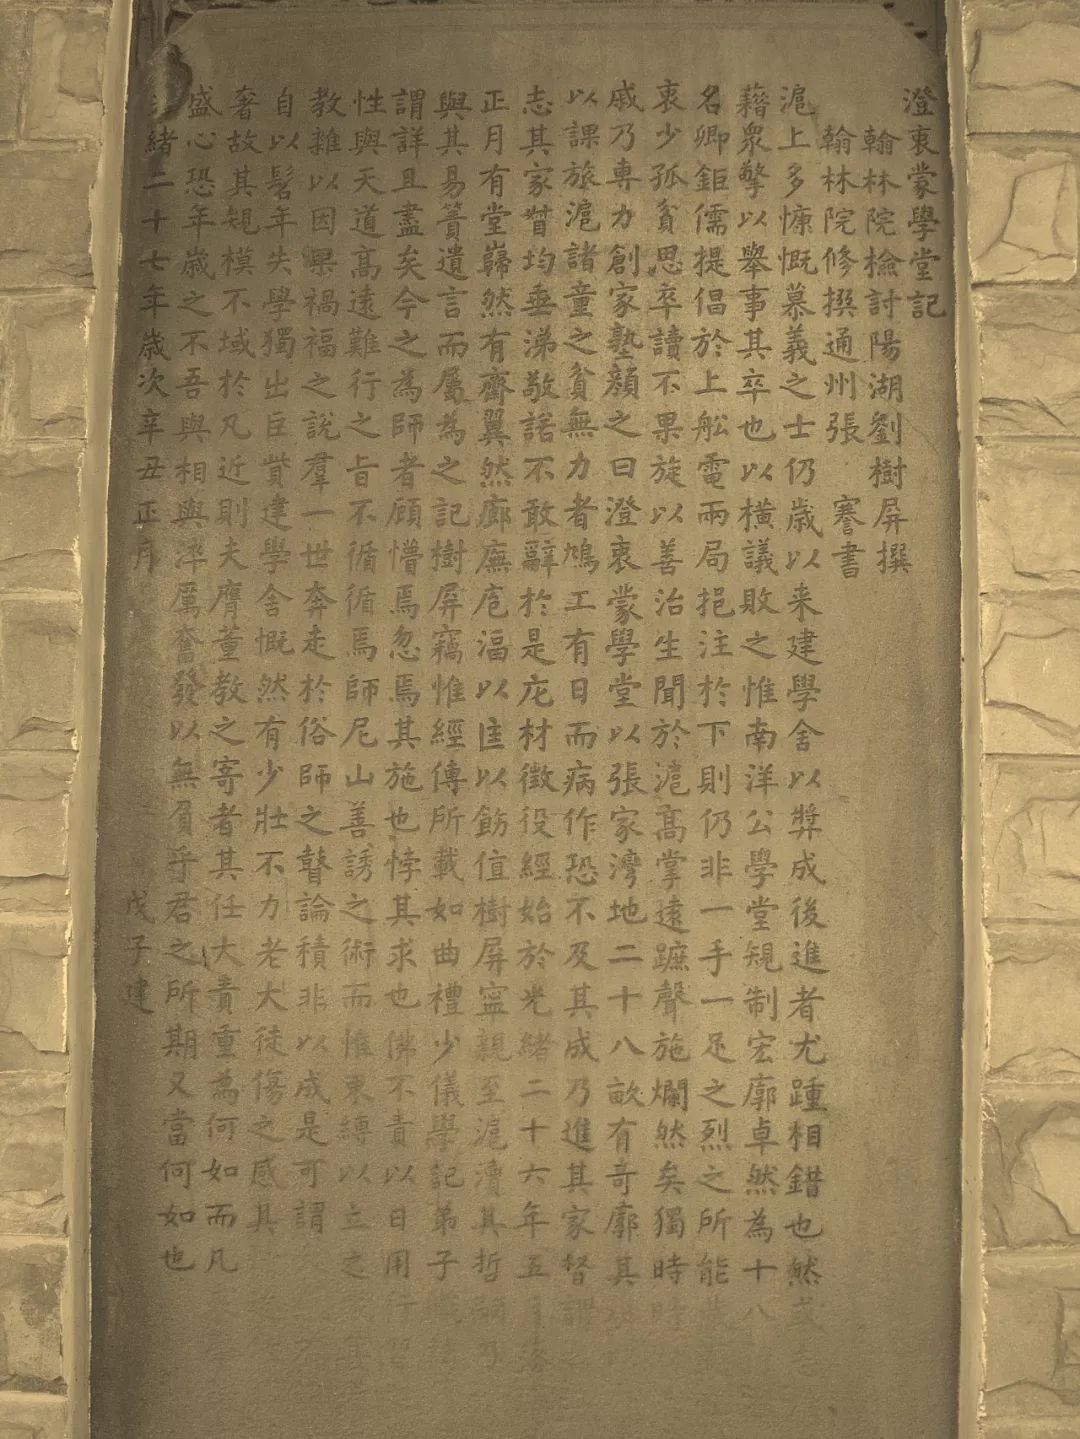 澄衷蒙學堂記
翰林院檢討陽湖劉樹屏撰
翰林院修撰通州張謇書
滬上多慷慨慕義之士仍歲以来建學舍以獎成後進者尤踵相錯也然或
藉衆擎以舉事其卒也以橫議敗之惟南洋公學堂規制宏廓卓然為十八
名卿鉅儒提倡於上舩電兩局挹注於下則仍非一手一足之烈之所能
衷少孤貧思卒讀不果旋以善治生聞於滬高掌遠蹠聲施爛然矣獨時時
戚乃專力創家塾顏之曰澄衷蒙學堂以張家灣地二十八畝有奇廓其
以課旅滬諸童之貧無力者鳩工有日而病作恐不及其成乃進其家督謂
志其家督均垂涕敬諾不敢辭於是庀材徵役經始於光緒二十六年五
正月有堂巋然有齋翼然廊廡庖湢以匡以飭值樹屏寧親至滬瀆其哲嗣乃
與其易簀遺言而屬為之記樹屏竊惟經傳所載如曲禮少儀學記弟子
謂詳且盡矣今之為師者顧懵焉忽焉其施也悖其求也佛不責以日用
性與天道高遠難行之旨不循循焉師尼山善誘之術而惟束縛以立之
教雜以因果禍福之說羣一世奔走於俗師之瞽論積非以成是可謂
自以髫年失學獨出巨貲建學舍慨然有少壯不力老大徒傷之感其
奢故其規模不域於凡近則夫膺董教之寄者其任大責重為何如而凡
盛心恐年歲之不吾與相與淬厲奮發以無負乎君之所期又當何如也
緒二十七年歲次辛丑正月
戊子建